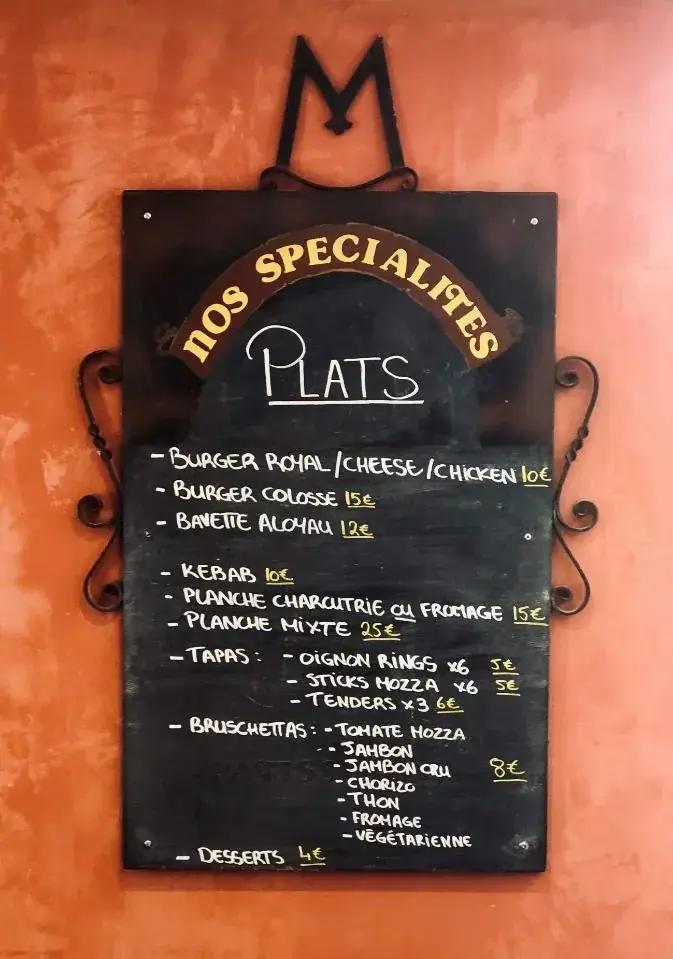 M
NOS SPECIALITES
PLATS
- BURGER ROYAL/CHEESE/CHICKEN 10€
- BURGER COLOSSE 15€
- BAVETTE ALOYAU 12€
- KEBAB 10€
- PLANCHE CHARCUTRIE OU FROMAGE 15€
- PLANCHE MIXTE 25€
- TAPAS : - OIGNON RINGS x6 5€
- STICKS MOZZA x6 5€
- TENDERS x3 6€
- BRUSCHETTAS : - TOMATE MOZZA
- JAMBON
- JAMBON CRU 8€
- CHORIZO
- THON
- FROMAGE
- VÉGÉTARIENNE
- DESSERTS 4€